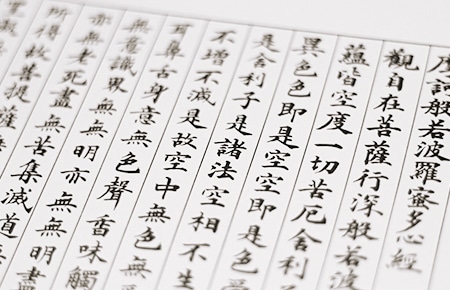 訶般若波羅蜜多心經
觀自在菩薩行深般若波
蘊皆空度一切苦厄舍利
異色色即是空空即是色
是舍利子是諸法空相不生
不增不減是故空中無色無
耳鼻舌身意無色聲香味觸
無意識界無無明亦無無明盡
亦無老死盡無苦集滅道無
所得故菩提薩